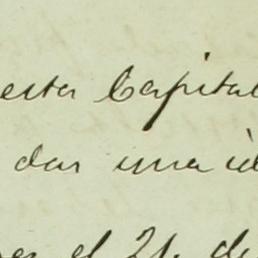 esta Capital
dar una id
el 21 de